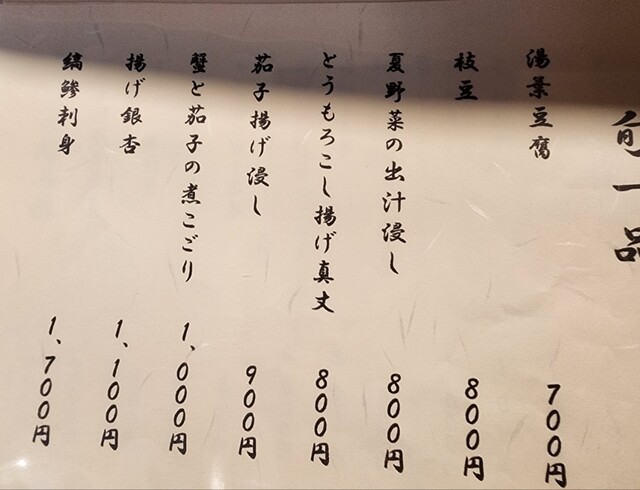 一品
湯葉豆腐 700円
枝豆 800円
夏野菜の出汁浸し 800円
とうもろこし揚げ真丈 800円
茄子揚げ浸し 900円
蟹と茄子の煮こごり 1,000円
揚げ銀杏 1,100円
縞鯵刺身 1,700円